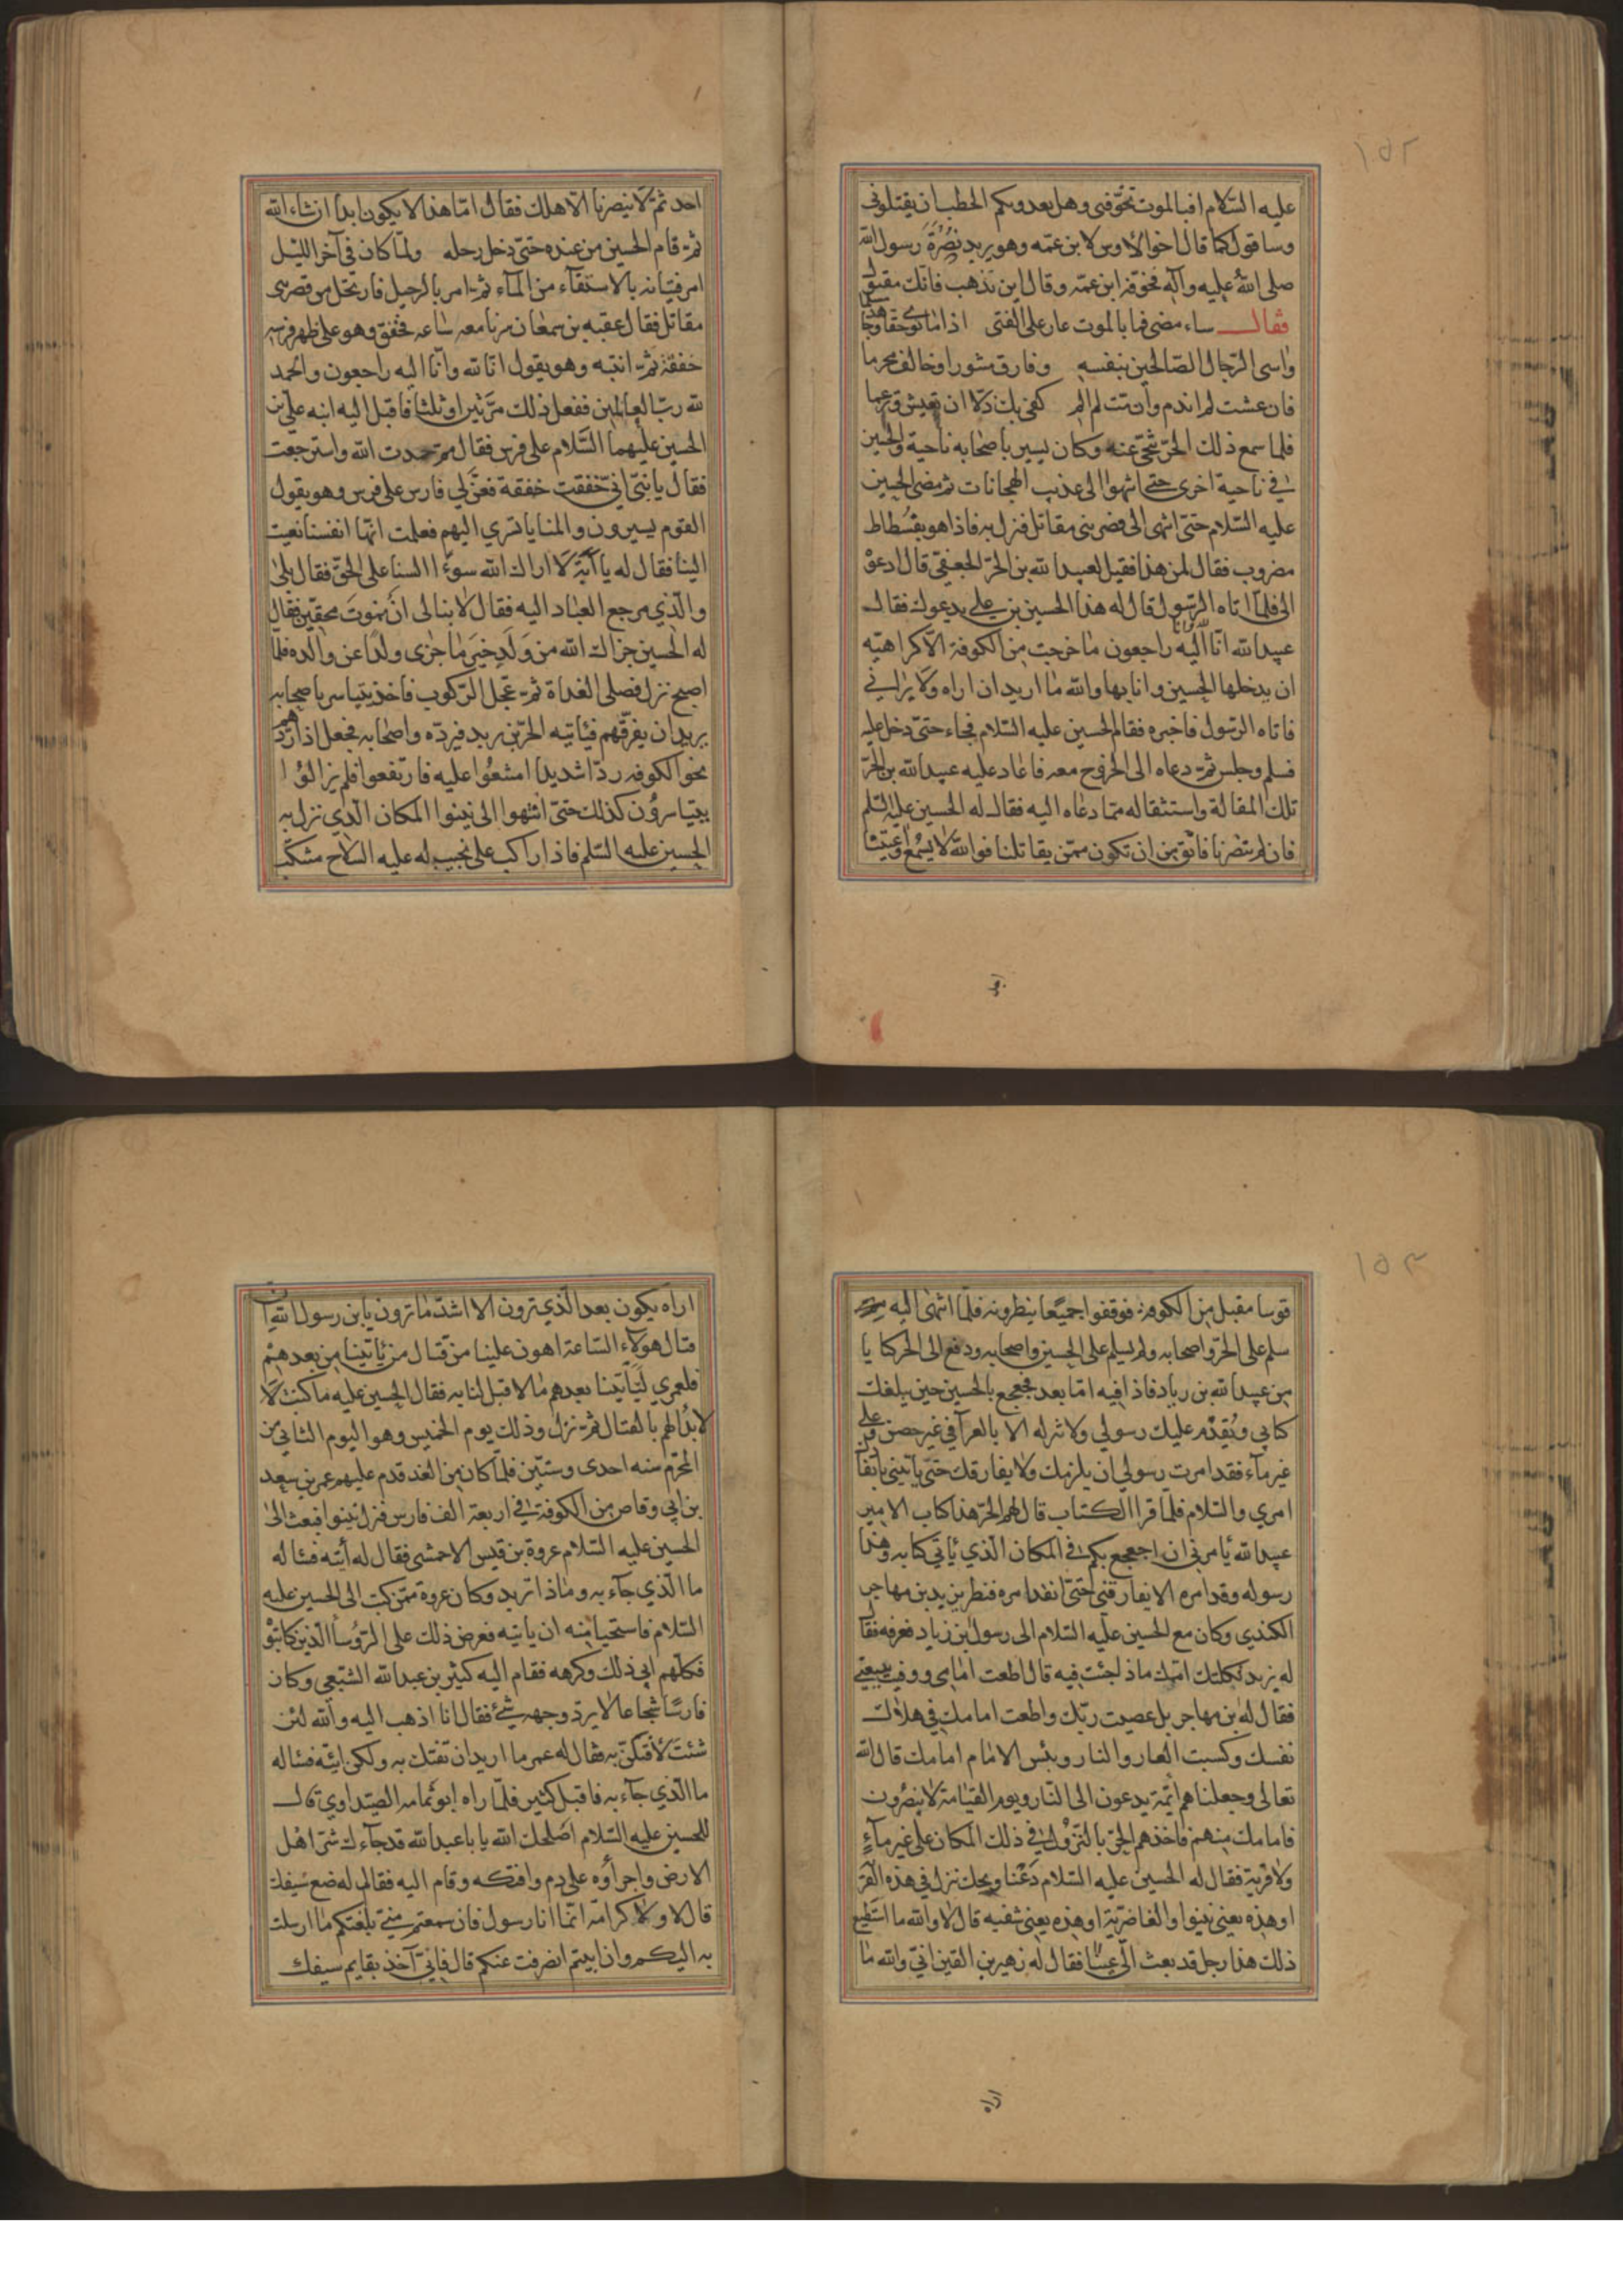 ١٥٢
عليه السلام افبالموت تخوفنى وهل يعدوبكم الخطب ان يقتلونى
وساقول كما قال اخو الاوس لابن عمه وهو يريد نصرة رسول الله
صلى الله عليه وآله فخوفه ابن عمه وقال اين تذهب فانك مقتول
فقال سامضى فما بالموت عار على الفتى اذا ما نوى حقا وجاهد مسلما
وآسى الرجال الصالحين بنفسه وفارق مثبورا وخالف مجرما
فان عشت لم اندم وان مت لم الم كفى بك ذلا ان تعيش وترغما
فلما سمع ذلك الحر تنحى عنه وكان يسير باصحابه ناحية والحسين
فى ناحية اخرى حتى انتهوا الى عذيب الهجانات ثم مضى الحسين
عليه السلام حتى انتهى الى قصر بنى مقاتل فنزل به فاذا هو بفسطاط
مضروب فقال لمن هذا فقيل لعبيد الله بن الحر الجعفى قال ادعوه
الى فلما اتاه الرسول قال له هذا الحسين بن على يدعوك فقال
عبيد الله انا لله وانا اليه راجعون ما خرجت من الكوفة الا كراهية
ان يدخلها الحسين وانا بها والله ما اريد ان اراه ولا يرانى
فاتاه الرسول فاخبره فقام الحسين عليه السلام فجاء حتى دخل عليه
فسلم وجلس ثم دعاه الى الخروج معه فاعاد عليه عبيد الله بن الحر
تلك المقالة واستقاله مما دعاه اليه فقال له الحسين عليه السلم
فان لم تنصرنا فاتق من ان تكون ممن يقاتلنا فوالله لا يسمع واعيتنا
احد
احد ثم لا ينصرنا الا هلك فقال اما هذا لا يكون ابدا ان شاء الله
ثم قام الحسين من عنده حتى دخل رحله ولما كان فى آخر الليل
امر فتيانه بالاستقآء من المآء ثم امر بالرحيل فارتحل من قصر بنى
مقاتل فقال عقبه بن سمعان سرنا معه ساعه فخفق وهو على ظهر فرسه
خفقة ثم انتبه وهو يقول انا لله وانا اليه راجعون والحمد
لله رب العالمين ففعل ذلك مرتين او ثلثا فاقبل اليه ابنه على بن
الحسين عليهما السلام على فرس فقال مم حمدت الله واسترجعت
فقال يا بنى انى خفقت خفقة فعن لى فارس على فرس وهو يقول
القوم يسيرون والمنايا تسري اليهم فعلمت انها انفسنا نعيت
الينا فقال له يا ابة لا اراك الله سوءً السنا على الحق فقال بلى
والذي مرجع العباد اليه فقال لا نبالى ان نموت محقين فقال
له الحسين جزاك الله من ولد خير ما جزى ولدا عن والده فلما
اصبح نزل فصلى الغداة ثم عجل الركوب فاخذ يتياسر باصحابه
يريد ان يفرقهم فياتيه الحر بن يزيد فيرده واصحابه فجعل اذا ردهم
نحو الكوفه ردا شديدا امتنعوا عليه فارتفعوا فلم يزالوا
يتياسرون كذلك حتى انتهوا الى نينوا المكان الذي نزل به
الحسين عليه السلم فاذا راكب على نجيب له عليه السلاح متنكب
١٥٣
قوسا مقبل من الكوفة فوقفوا جميعا ينظرونه فلما انتهى اليه
سلم على الحر واصحابه ولم يسلم على الحسين واصحابه ودفع الى الحر كتابا
من عبيد الله بن زياد فاذا فيه اما بعد فجعجع بالحسين حين يبلغك
كتابي ويقدم عليك رسولي ولا تنزله الا بالعرآ في غير حصن وعلى
غير مآء فقد امرت رسولي ان يلزمك ولا يفارقك حتى ياتيني بانفاذ
امري والسلام فلما قرا الكتاب قال لهم الحر هذا كتاب الامير
عبيد الله يامرني ان اجعجع بكم في المكان الذي ياتي كتابه وهذا
رسوله وقد امره الا يفارقنى حتى انفذ امره فنظر يزيد بن مهاجر
الكندي وكان مع الحسين عليه السلام الى رسول ابن زياد فعرفه فقال
له يزيد ثكلتك امك ماذا جئت فيه قال اطعت امامى ووفيت ببيعتى
فقال له ابن مهاجر بل عصيت ربك واطعت امامك في هلاك
نفسك وكسبت العار والنار وبئس الامام امامك قال الله
تعالى وجعلناهم ائمة يدعون الى النار ويوم القيامة لا ينصرون
فامامك منهم فاخذهم الحر بالنزول فى ذلك المكان على غير مآء
ولا قرية فقال له الحسين عليه السلام دعنا ويحك ننزل في هذه القرية
او هذه يعني نينوا والغاضرية او هذه يعني شفيه قال لا والله ما استطيع
ذلك هذا رجل قد بعث الي عينا فقال له زهير بن القين اني والله ما
اراه
اراه يكون بعد الذي ترون الا اشد مما ترون يابن رسول الله ان
قتال هولاء الساعة اهون علينا من قتال من ياتينا من بعدهم
فلعمري لياتينا بعدهم ما لا قبل لنا به فقال الحسين عليه ما كنت
لابدأهم بالقتال ثم نزل وذلك يوم الخميس وهو اليوم الثاني من
المحرم سنه احدى وستين فلما كان من الغد قدم عليهم عمر بن سعد
بن ابي وقاص من الكوفة فى اربعة الف فارس فنزل نينوا فبعث الى
الحسين عليه السلام عروة بن قيس الاحمشى فقال له ائته فسئاله
ما الذي جآء به وماذا تريد وكان عروة ممن كتب الى الحسين عليه
السلام فاستحيا منه ان ياتيه فعرض ذلك على الروسآ الذين كاتبوه
فكلهم ابى ذلك وكرهه فقام اليه كثير بن عبد الله الشعبي وكان
فارسًا شجاعا لا يرد وجهه شئ فقال انا اذهب اليه والله لئن
شئت لافتكن به فقال له عمر ما اريد ان تفتك به ولكن ايته فسئاله
ما الذي جآء به فاقبل كثير فلما راه ابو ثمامه الصيداوي قال
للحسين عليه السلام اصلحك الله يا باعبد الله قد جآءك شر اهل
الارض واجرأوه على دم وافتكه وقام اليه فقال له ضع سيفك
قال لا ولا كرامة انما انا رسول فان سمعتم مني بلغتكم ما ارسلت
به اليكم وان ابيتم انصرفت عنكم قال فاني آخذ بقايم سيفك